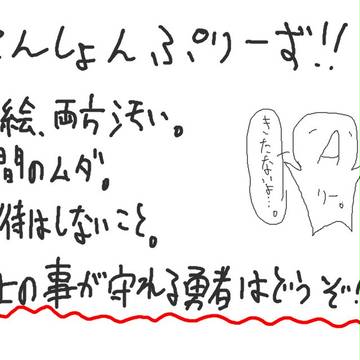 んしょんぷりーず!!
絵、両方汚い。
間のムダ。
待はしないこと。
の事が守れる勇者はどうぞ!
きたないよ…。
A
リー。